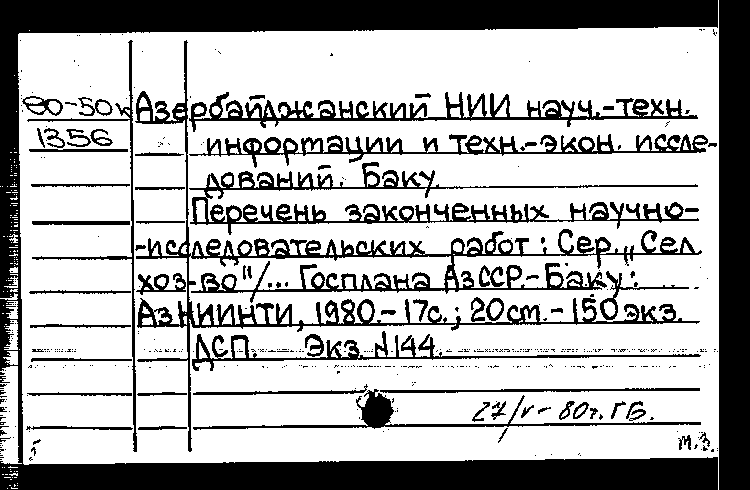 80-50к Азербайджанский НИИ науч.-техн.
1356 информации и техн.-экон. иссле-
дований. Баку.
Перечень законченных научно-
-исследовательских работ: Сер. „Сел.
хоз-во"/... Госплана АзССР.-Баку:
АзНИИНТИ, 1980.-17с.; 20см.-150экз.
ДСП. Экз №144.
27/V-80г. ГБ.
м.з.